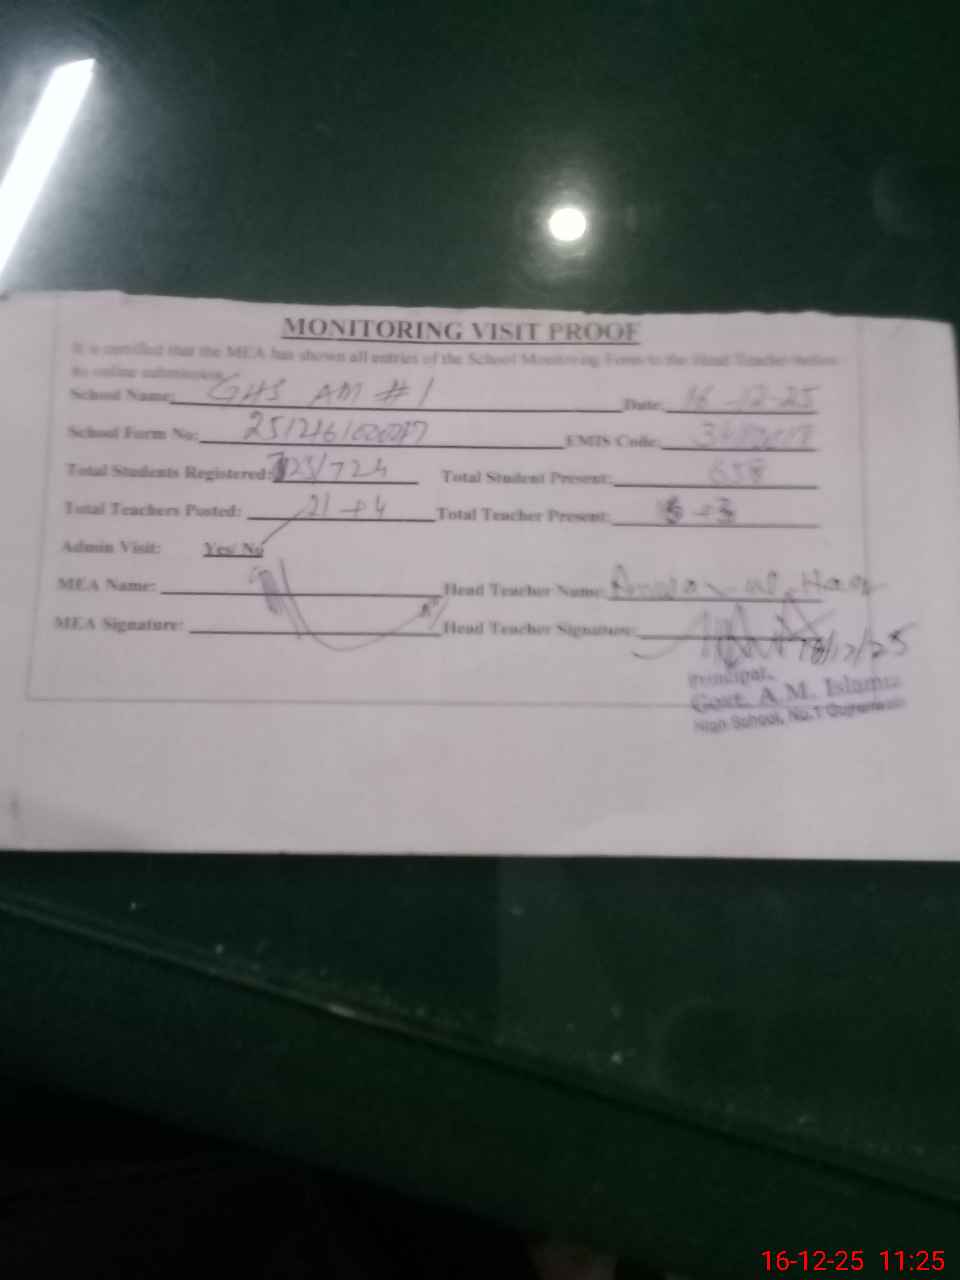 MONITORING VISIT PROOF
It is certified that the MEA has shown all entries of the School Monitoring Form to the Head Teacher before
its online submission.
School Name: GHS AM # 1 Date: 16-12-25
School Form No: EMIS Code:
Total Students Registered: 723/724 Total Student Present: 658
Total Teachers Posted: 21 + 4 Total Teacher Present:
Admin Visit: Yes/ No
MEA Name: Head Teacher Name:
MEA Signature: Head Teacher Signature:
Principal,
Govt. A.M. Islamia
High School, No.1
16-12-25 11:25